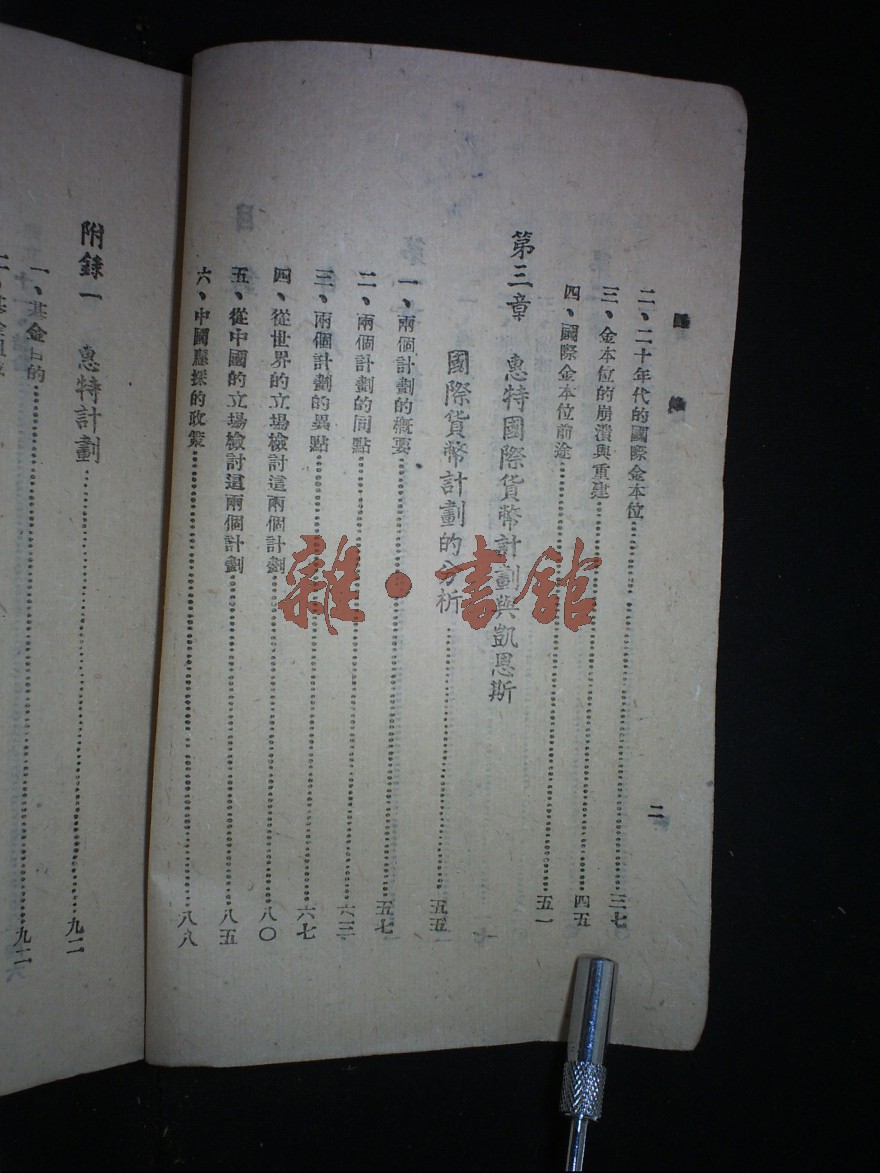 目錄
二
二、二十年代的國際金本位……三七
三、金本位的崩潰與重建……四五
四、國際金本位前途……五一
第三章 惠特國際貨幣計劃與凱恩斯
國際貨幣計劃的分析……五五
一、兩個計劃的概要……五七
二、兩個計劃的同點……六三
三、兩個計劃的異點……六七
四、從世界的立場檢討這兩個計劃……八〇
五、從中國的立場檢討這兩個計劃……八五
六、中國應採的政策……八八
附錄一 惠特計劃……九二
一、基金目的……九二
雜·書館